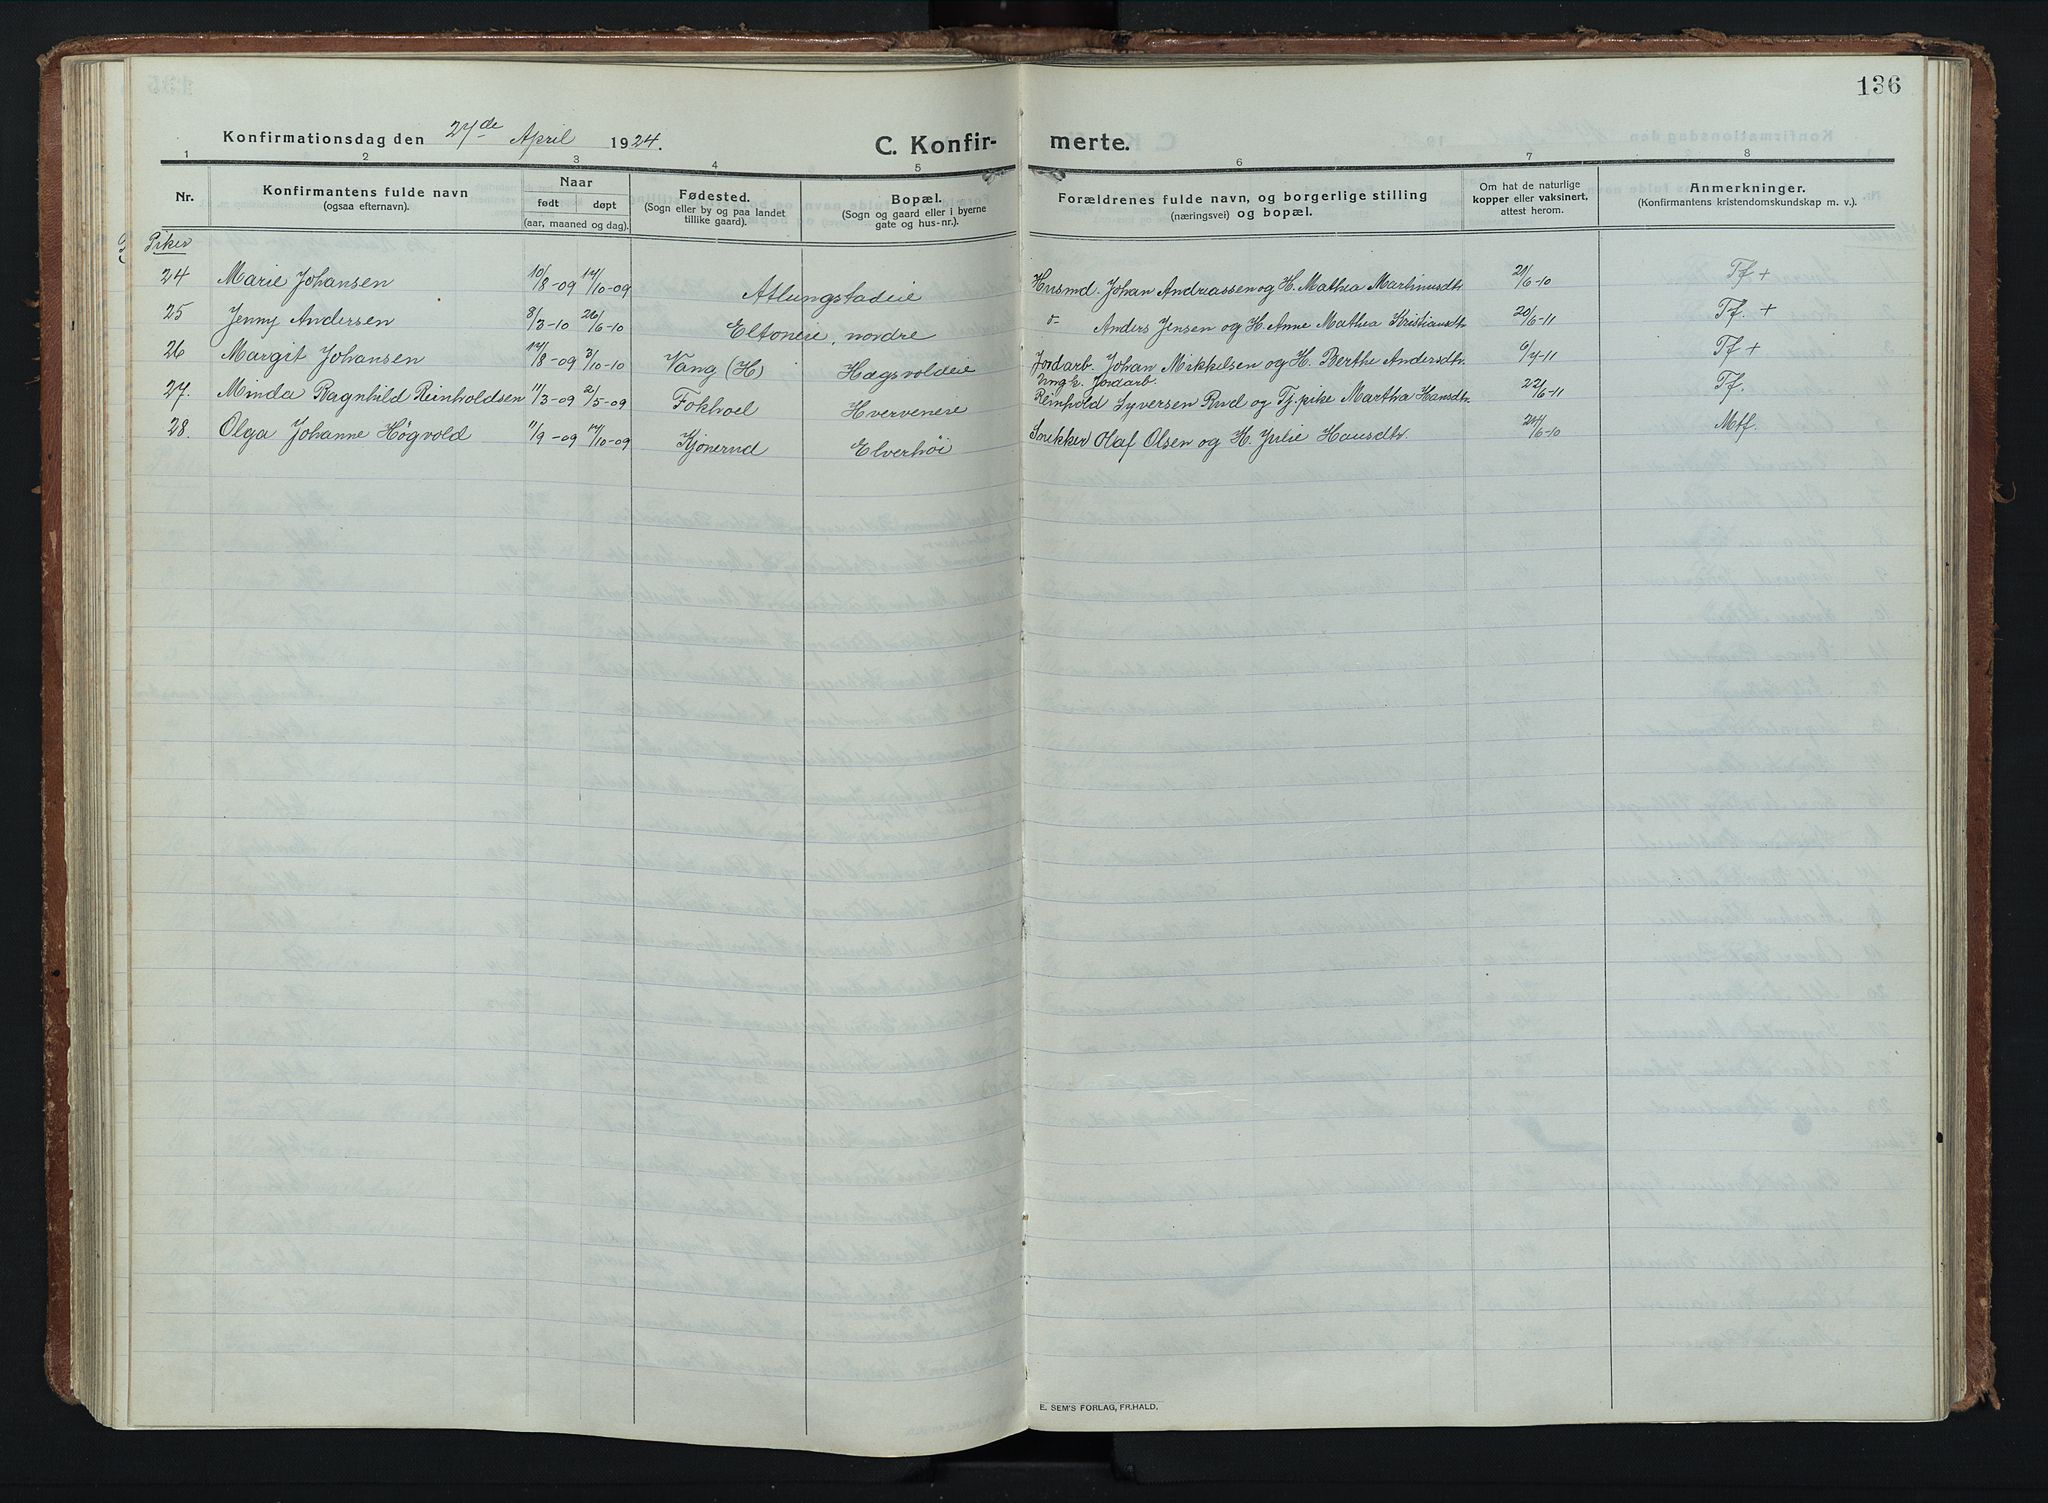 136
Konfirmationsdag den 27de April 1924.
C. Konfir- merte.
1 2 3 4 5 6 7 8
Nr.
Konfirmantens fulde navn
(ogsaa efternavn).
Naar
født døpt
(aar, maaned og dag).
Fødested.
(Sogn eller by og paa landet
tillike gaard).
Bopæl.
(Sogn og gaard eller i byerne
gate og hus-nr.).
Forældrenes fulde navn, og borgerlige stilling
(næringsvei) og bopæl.
Om hat de naturlige
kopper eller vaksinert,
attest herom.
Anmerkninger.
(Konfirmantens kristendomskundskap m. v.).
Piker
24 Marie Johansen 10/8-09 17/10-09 Atlungstadeie Husmd. Johan Andreassen og H. Mathea Martinusdtr 21/6-10 Tf +
25 Jenny Andersen 8/3-10 26/6-10 Eltoneie, nordre Anders Jensen og H. Anne Mathea Kristiansdtr 20/6-11 Tf. +
26 Margit Johansen 17/8-09 3/10-10 Vang (H) Hægsvoldeie Jordarb. Johan Mikkelsen og H. Berthe Andersdtr. 6/7-11 Tf +
Ungk. Jordarb.
27. Minda Ragnhild Reinholdsen 11/3-09 2/5-09 Fokhoel Hverveneie Reinhold Syversen Rud og Tj.pike Martha Hansdtr. 22/6-11 Tf.
28. Olga Johanne Høgvold 11/9-09 17/10-09 Kjønerud Elverhøi Snekker Olaf Olsen og H. Julie Hansdtr. 24/6-10 Mtf.
E. SEM'S FORLAG, FR.HALD.